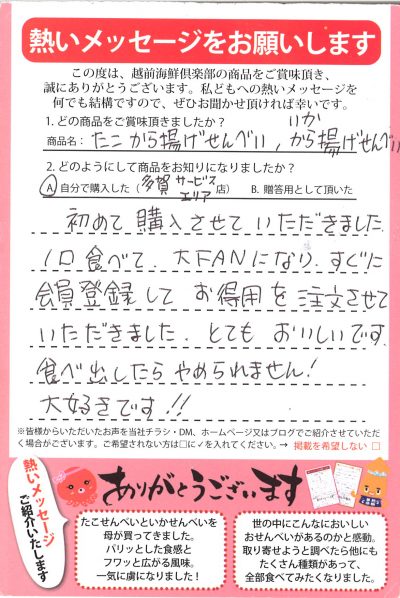 熱いメッセージをお願いします
この度は、越前海鮮倶楽部の商品をご賞味頂き、
誠にありがとうございます。私どもへの熱いメッセージを
何でも結構ですので、ぜひお聞かせ頂ければ幸いです。
1. どの商品をご賞味頂きましたか?
いか
商品名: たこから揚げせんべい、から揚げせんべい
2. どのようにして商品をお知りになりましたか?
A 自分で購入した(多賀サービスエリア店) B. 贈答用として頂いた
初めて購入させていただきました.
1口食べて 大FANになり、すぐに
会員登録して お得用を注文させて
いただきました. とても おいしいです.
食べ出したらやめられません!
大好きです!!
※皆様からいただいたお声を当社チラシ・DM、ホームページ又はブログでご紹介させていただ
く場合がございます。ご希望されない方は□に✓を入れてください。→ 掲載を希望しない □
熱いメッセージ
ご紹介いたします
ありがとうございます
たこせんべいといかせんべいを
母が買ってきました。
パリッとした食感と
フワッと広がる風味。
一気に虜になりました!
世の中にこんなにおいしい
おせんべいがあるのかと感動。
取り寄せようと調べたら他にも
たくさん種類があって、
全部食べてみたくなりました。